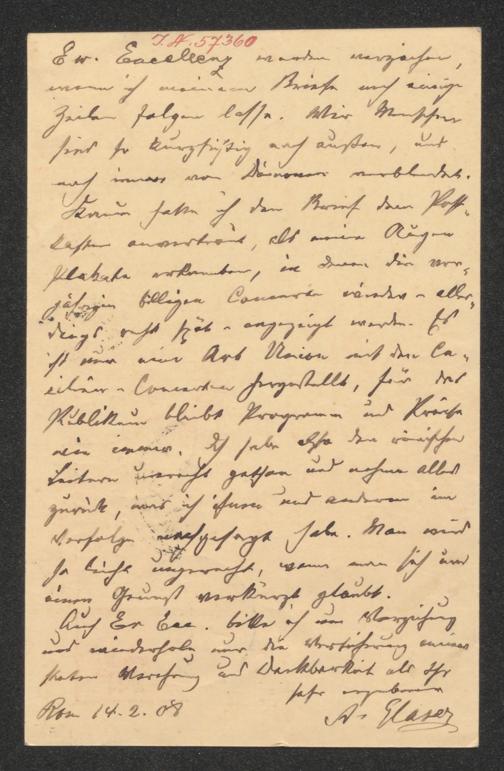 I.N. 57360
Ew. Excellenz werden verzeihen,
wenn ich meinem Briefe noch einige
Zeilen folgen lasse. Wir Menschen
sind so kurzsichtig nach außen, und
nach innen von Dämonen verblendet.
Kaum hatte ich den Brief dem Post-
kasten anvertraut, als meine Augen
Plakate erkannten, in denen die vor-
jährigen billigen Concerte wieder – aller-
dings recht spät – angezeigt werden. Es
ist nur eine Art Union mit den Cä-
cilien-Concerten hergestellt, für das
Publikum bleibt Programm und Preise
wie immer. Ich habe also den römischen
Leitern unrecht gethan und nehme alles
zurück, was ich ihnen und anderen im
Verfolge nachgesagt habe. Man wird
so leicht ungerecht, wenn man sich um
einen Genuß verkürzt glaubt.
Auch Ew Exc. bitte ich um Verzeihung
und wiederhole nur die Versicherung meiner
steten Verehrung und Dankbarkeit als Ihr
sehr ergebener
Rom 14.2.08 A. Glaser